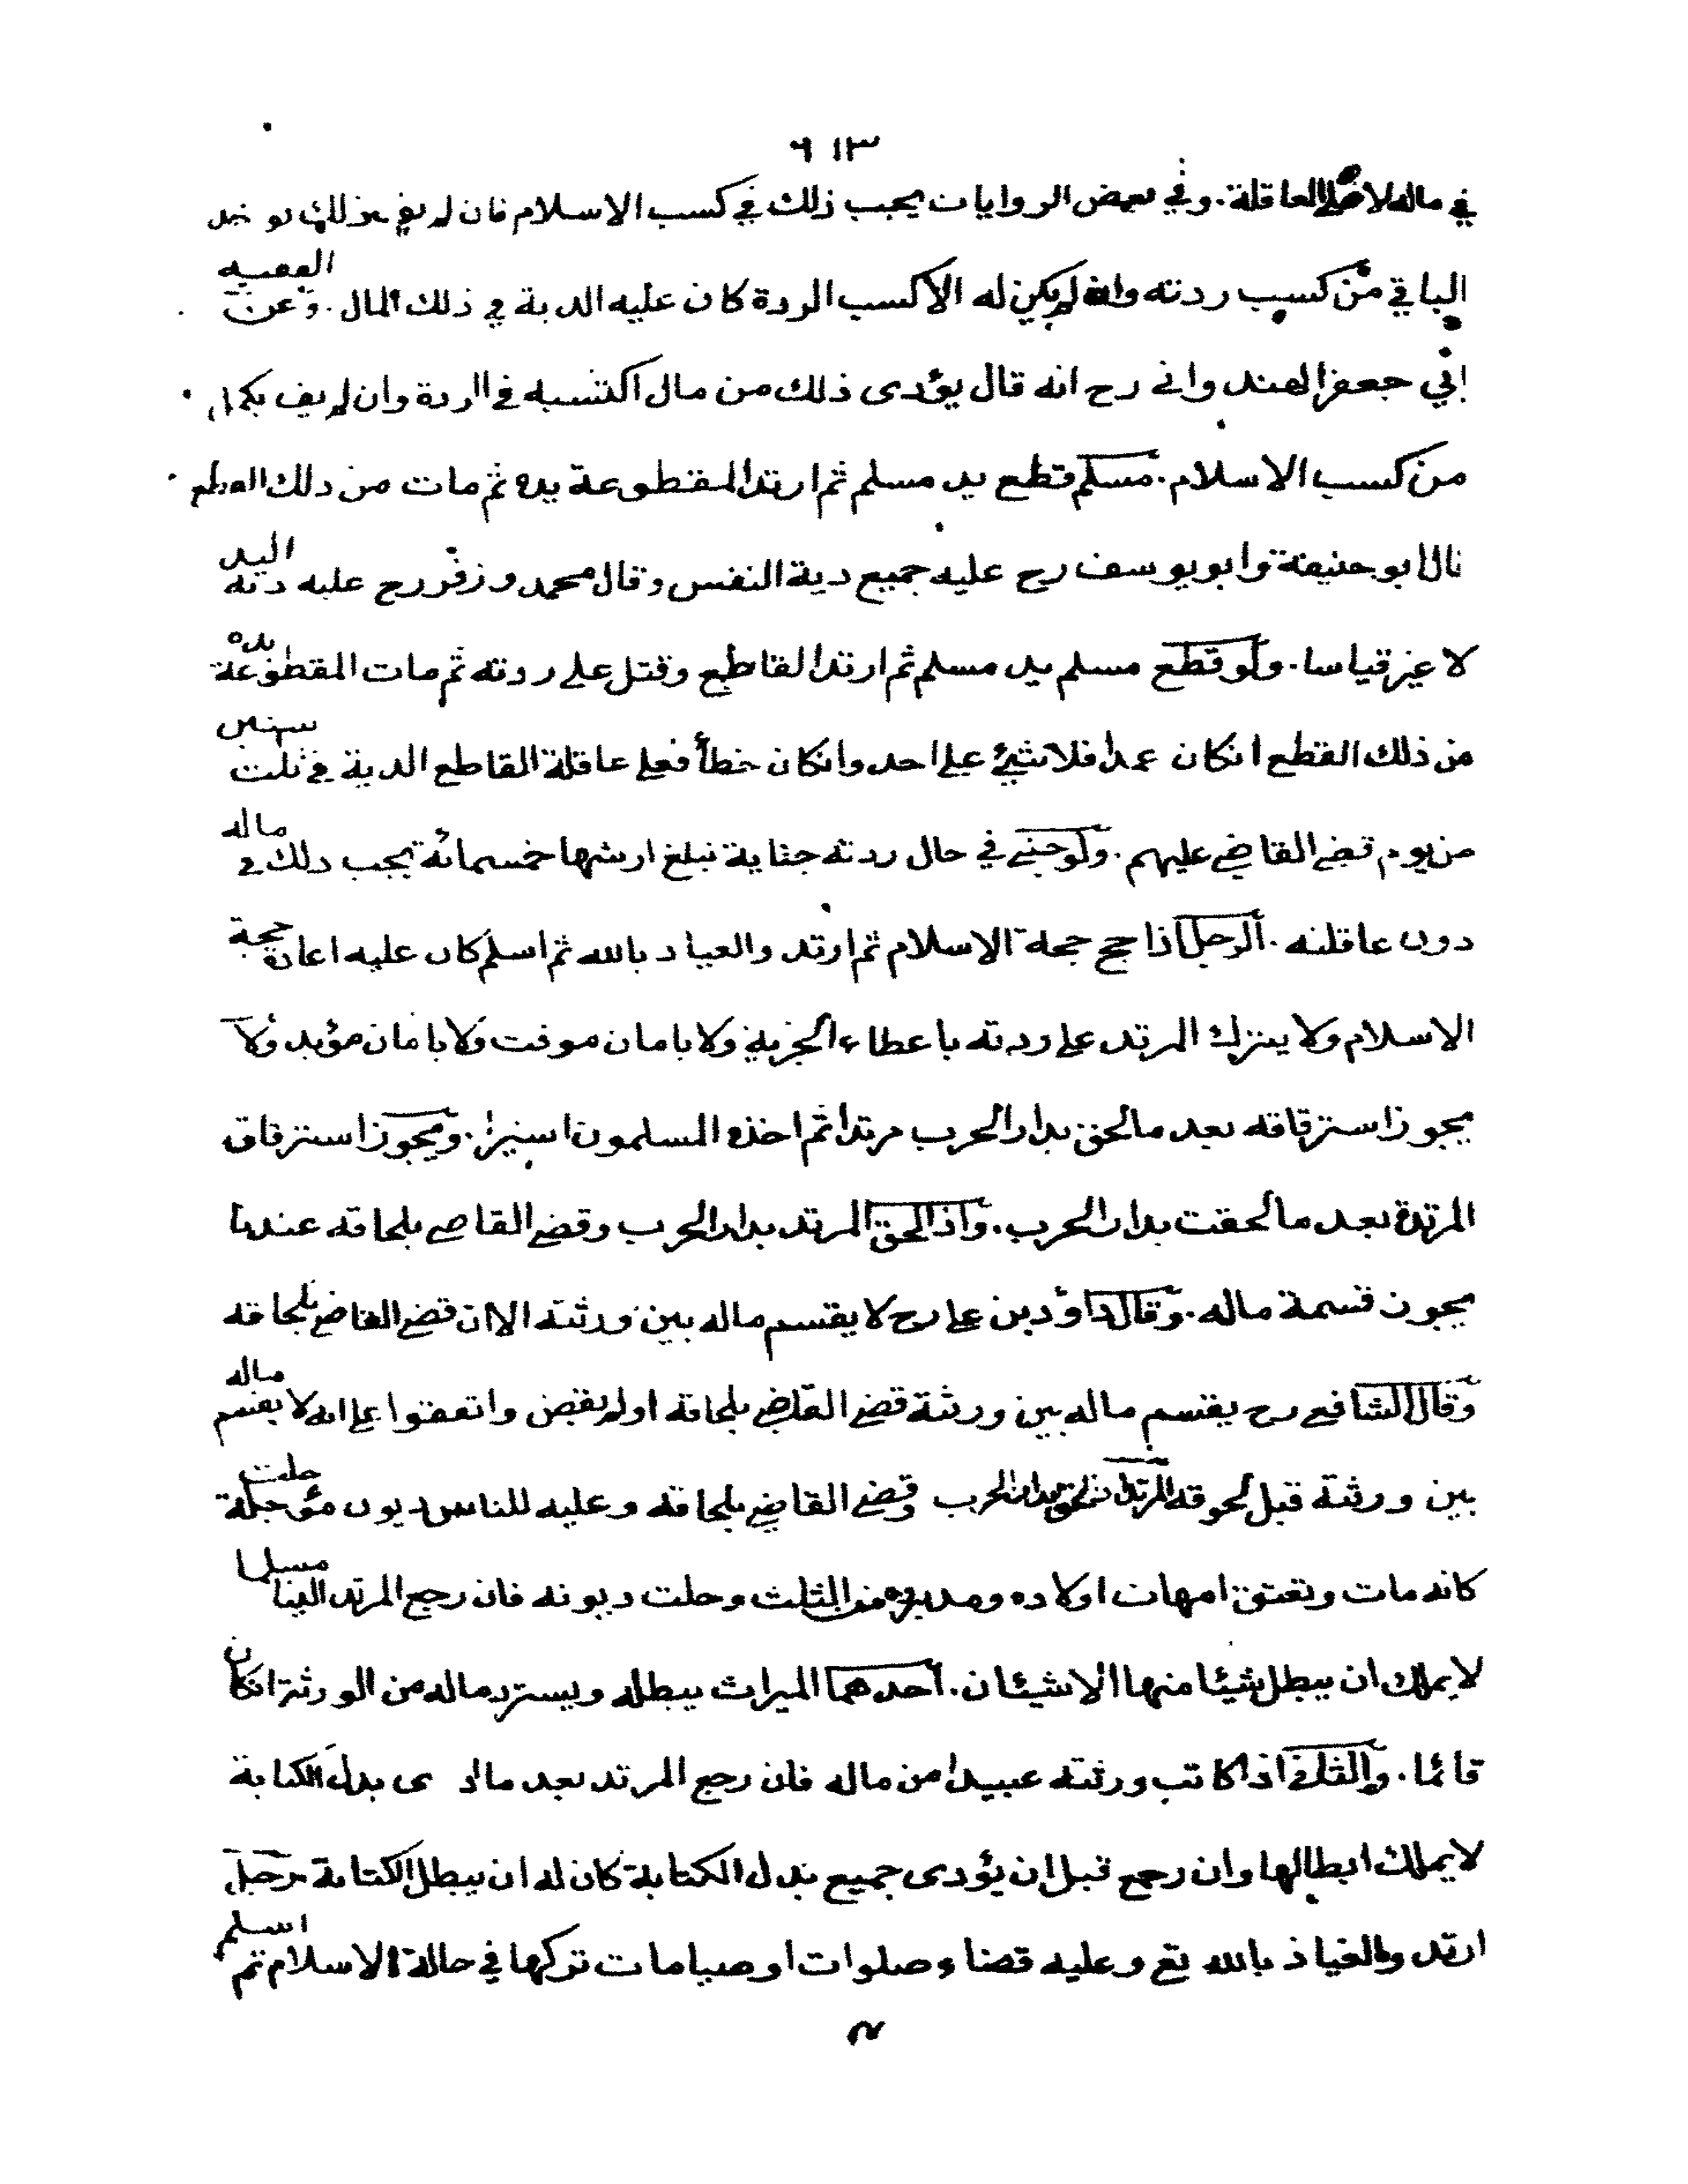 ٦١٣
في ماله لا على العاقلة. وفي بعض الروايات يجب ذلك في كسب الاسلام فان لم يف بذلك يوخذ
الباقي من كسب ردته وان لم يكن له الا كسب الردة كان عليه الدية في ذلك المال. وعن الفقيه
ابي جعفر الهندواني رح انه قال يؤدى ذلك من مال اكتسبه في الردة وان لم يف يكمل
من كسب الاسلام. مسلم قطع يد مسلم ثم ارتد المقطوعة يده ثم مات من ذلك القطع
قال ابو حنيفة وابو يوسف رح عليه جميع دية النفس وقال محمد وزفر رح عليه دية اليد
لا غير قياسا. ولو قطع مسلم يد مسلم ثم ارتد القاطع وقتل على ردته ثم مات المقطوعة يده
من ذلك القطع انكان عمدا فلا شيئ على احد وانكان خطأ فعلى عاقلة القاطع الدية في ثلث سنين
من يوم قضى القاضي عليهم. ولو جنى في حال ردته جناية تبلغ ارشها خمسمائة يجب ذلك في ماله
دون عاقلته. الرجل اذا حج حجة الاسلام ثم ارتد والعياذ بالله ثم اسلم كان عليه اعادة حجة
الاسلام ولا يترك المرتد على ردته باعطاء الجزية ولا بامان موقت ولا بامان مؤبد ولا
يجوز استرقاقه بعد ما لحق بدار الحرب مرتدا ثم اخذه المسلمون اسيرا. ويجوز استرقاق
المرتدة بعد ما لحقت بدار الحرب. واذا لحق المرتد بدار الحرب وقضى القاضي بلحاقه عندنا
يجوز قسمة ماله. وقال داؤد بن علي رح لا يقسم ماله بين ورثته الا ان قضى القاضي بلحاقه
وقال الشافعي رح يقسم ماله بين ورثة قضى القاضي بلحاقه او لم يقض واتفقوا على انه لا يقسم ماله
بين ورثته قبل لحوقه المرتد اذا لحق بدار الحرب وقضى القاضي بلحاقه وعليه للناس ديون مؤجلة حلت
كانه مات وتعتق امهات اولاده ومدبروه من الثلث وحلت ديونه فان رجع المرتد الينا مسلما
لا يملك ان يبطل شيئا منها الا شيئان. احدهما الميراث يبطله ويسترد ماله من الورثة انكان
قائما. والثاني اذا كاتب ورثته عبيدا من ماله فان رجع المرتد بعد ما ادى بدل الكتابة
لا يملك ابطالها وان رجع قبل ان يؤدى جميع بدل الكتابة كان له ان يبطل الكتابة رجل
ارتد والعياذ بالله تع وعليه قضاء صلوات او صيامات تركها في حالة الاسلام ثم اسلم